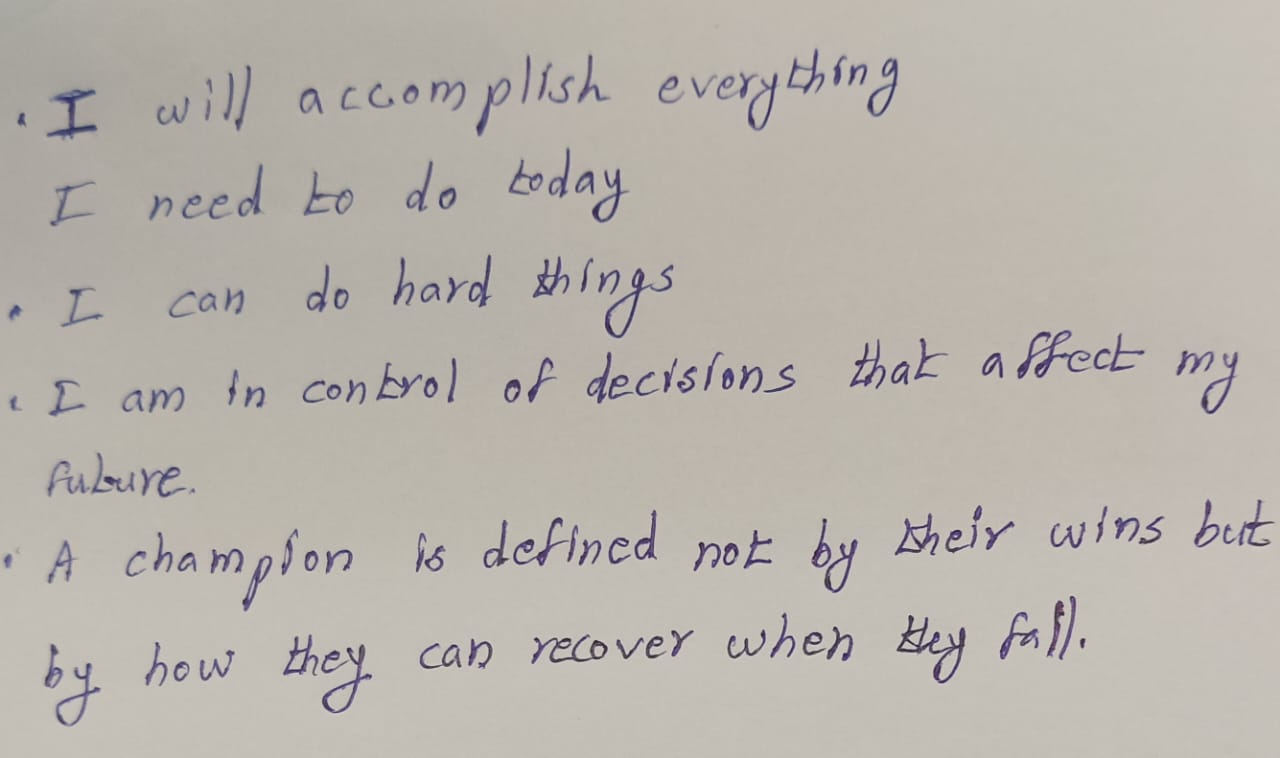 • I will accomplish everything
I need to do today
• I can do hard things
• I am in control of decisions that affect my
future.
• A champion is defined not by their wins but
by how they can recover when they fall.